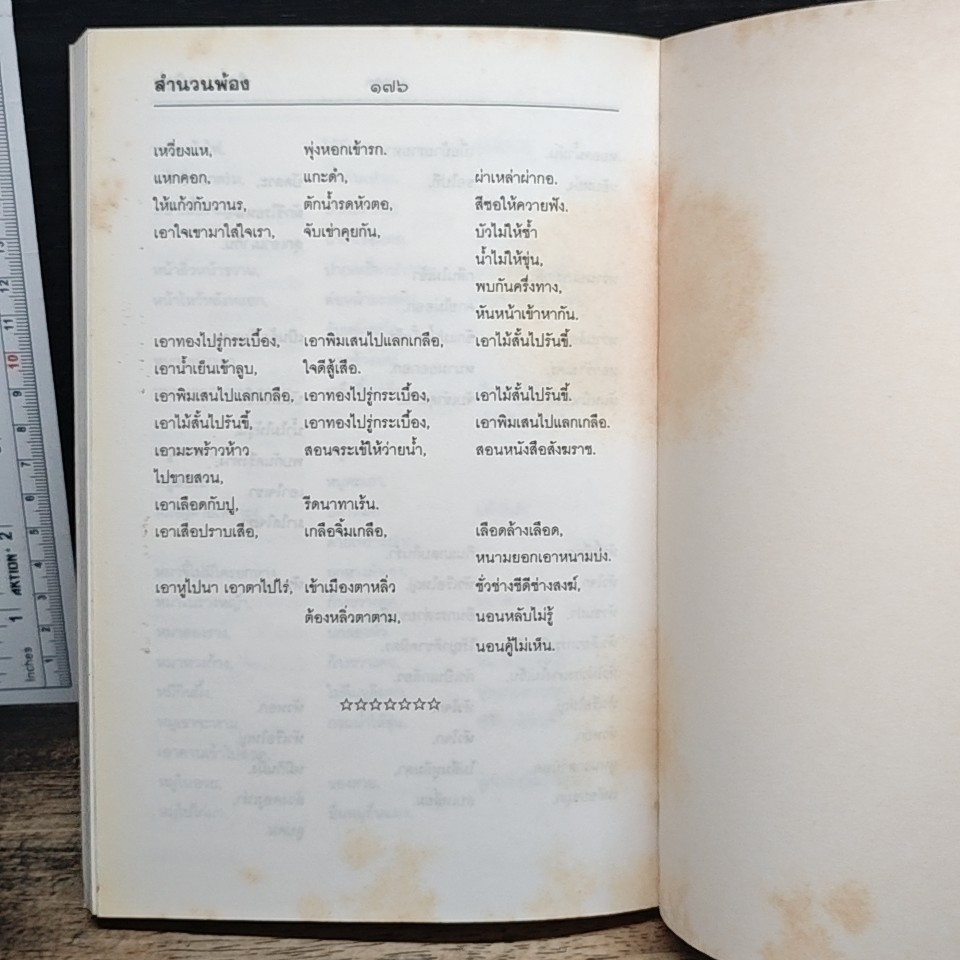 สำนวนพ้อง ๑๗๖
เหวี่ยงแห, พุ่งหอกเข้ารก.
แหกคอก, แกะดำ, ผ่าเหล่าผ่ากอ.
ให้แก้วกับวานร, ตักน้ำรดหัวตอ, สีซอให้ควายฟัง.
เอาใจเขามาใส่ใจเรา, จับเข่าคุยกัน, บัวไม่ให้ช้ำ
น้ำไม่ให้ขุ่น,
พบกันครึ่งทาง,
หันหน้าเข้าหากัน.
เอาทองไปรู่กระเบื้อง, เอาพิมเสนไปแลกเกลือ, เอาไม้สั้นไปรันขี้.
เอาน้ำเย็นเข้าลูบ, ใจดีสู้เสือ.
เอาพิมเสนไปแลกเกลือ, เอาทองไปรู่กระเบื้อง, เอาไม้สั้นไปรันขี้.
เอาไม้สั้นไปรันขี้, เอาทองไปรู่กระเบื้อง, เอาพิมเสนไปแลกเกลือ.
เอามะพร้าวห้าว สอนจระเข้ให้ว่ายน้ำ, สอนหนังสือสังฆราช.
ไปขายสวน,
เอาเลือดกับปู, รีดนาทาเร้น.
เอาเสือปราบเสือ, เกลือจิ้มเกลือ, เลือดล้างเลือด,
หนามยอกเอาหนามบ่ง.
เอาหูไปนา เอาตาไปไร่, เข้าเมืองตาหลิ่ว ชั่วช่างชีดีช่างสงฆ์,
ต้องหลิ่วตาตาม, นอนหลับไม่รู้
นอนคู้ไม่เห็น.
☆☆☆☆☆☆☆
inches 1 2 3 4 5 6 7 8 9 10 11 12 13
AKTION 1 2